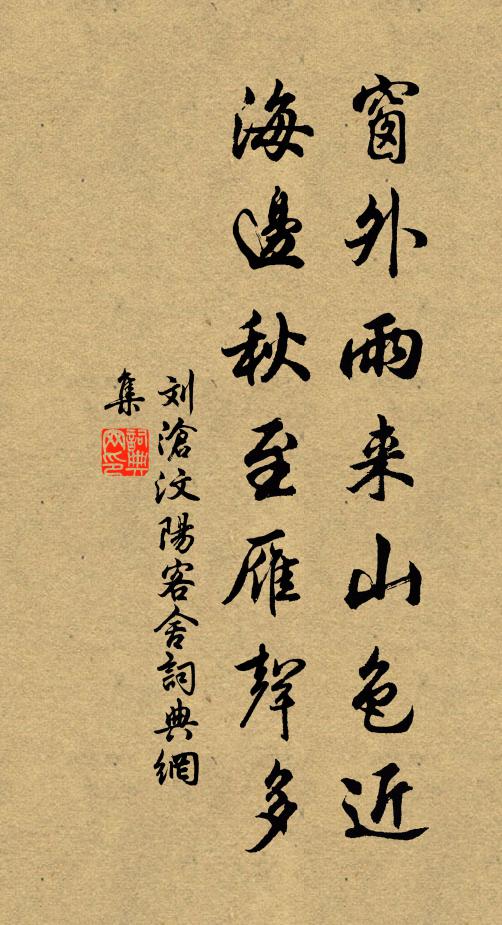 窗外雨来山色近
海邊秋至雁聲多
刘滄汶陽客舍詞典網
集
詞典網印